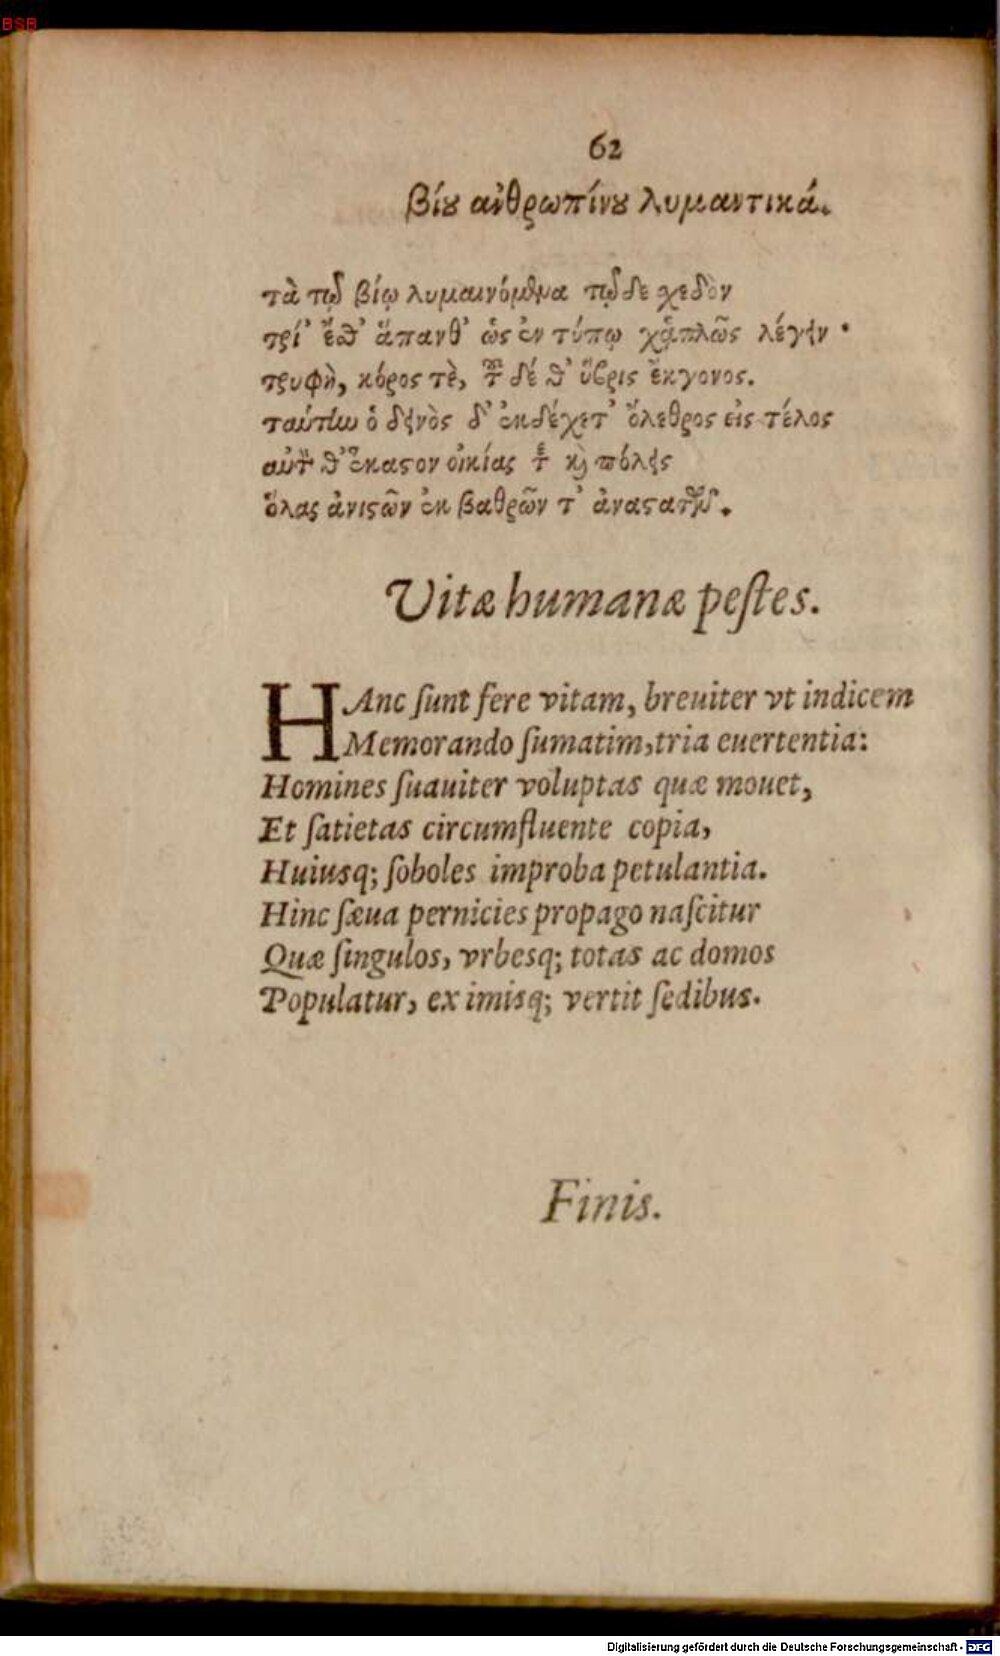 BSB
62
βίȣ ανθρωπίνȣ λυμαντικά.
τὰ τῷ βίῳ λυμαινόμενα τῷδε χεδὸν
τρί' ἔσθ' ἅπανθ' ὡς ἐν τύπῳ χἁπλῶς λέγειν·
τρυφὴ, κόρος τὲ, τοῦ δέ θ' ὕβρις ἔκγονος.
ταύτην ὁ δεινὸς δ' ἐκδέχετ' ὄλεθρος εἰς τέλος
θ' ἕκαστον οἰκίας καὶ πόλεις
ὅλας ἀνιστῶν ἐκ βαθρῶν τ'
Vitæ humanæ peſtes.
HAnc ſunt fere vitam, breuiter vt indicem
Memorando ſumatim, tria euertentia:
Homines ſuauiter voluptas quæ mouet,
Et ſatietas circumfluente copia,
Huiusq; ſoboles improba petulantia.
Hinc ſæua pernicies propago naſcitur
Quæ ſingulos, vrbesq; totas ac domos
Populatur, ex imisq; vertit ſedibus.
Finis.
Digitalisierung gefördert durch die Deutsche Forschungsgemeinschaft - DFG